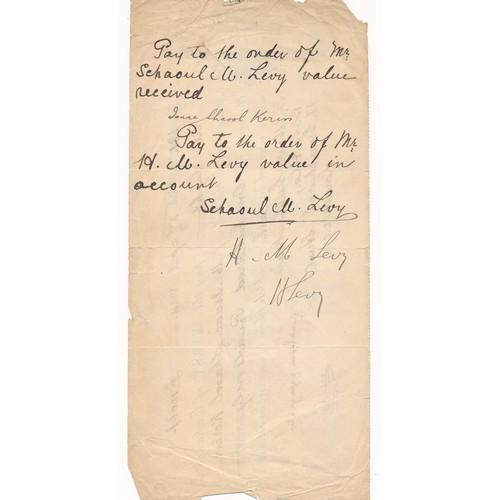 Pay to the order of Mr.
Schaoul M. Levy value
received
Isaac Shaool
Pay to the order of Mr
H. M. Levy value in
account
Schaoul M. Levy
H. M Levy
HLevy